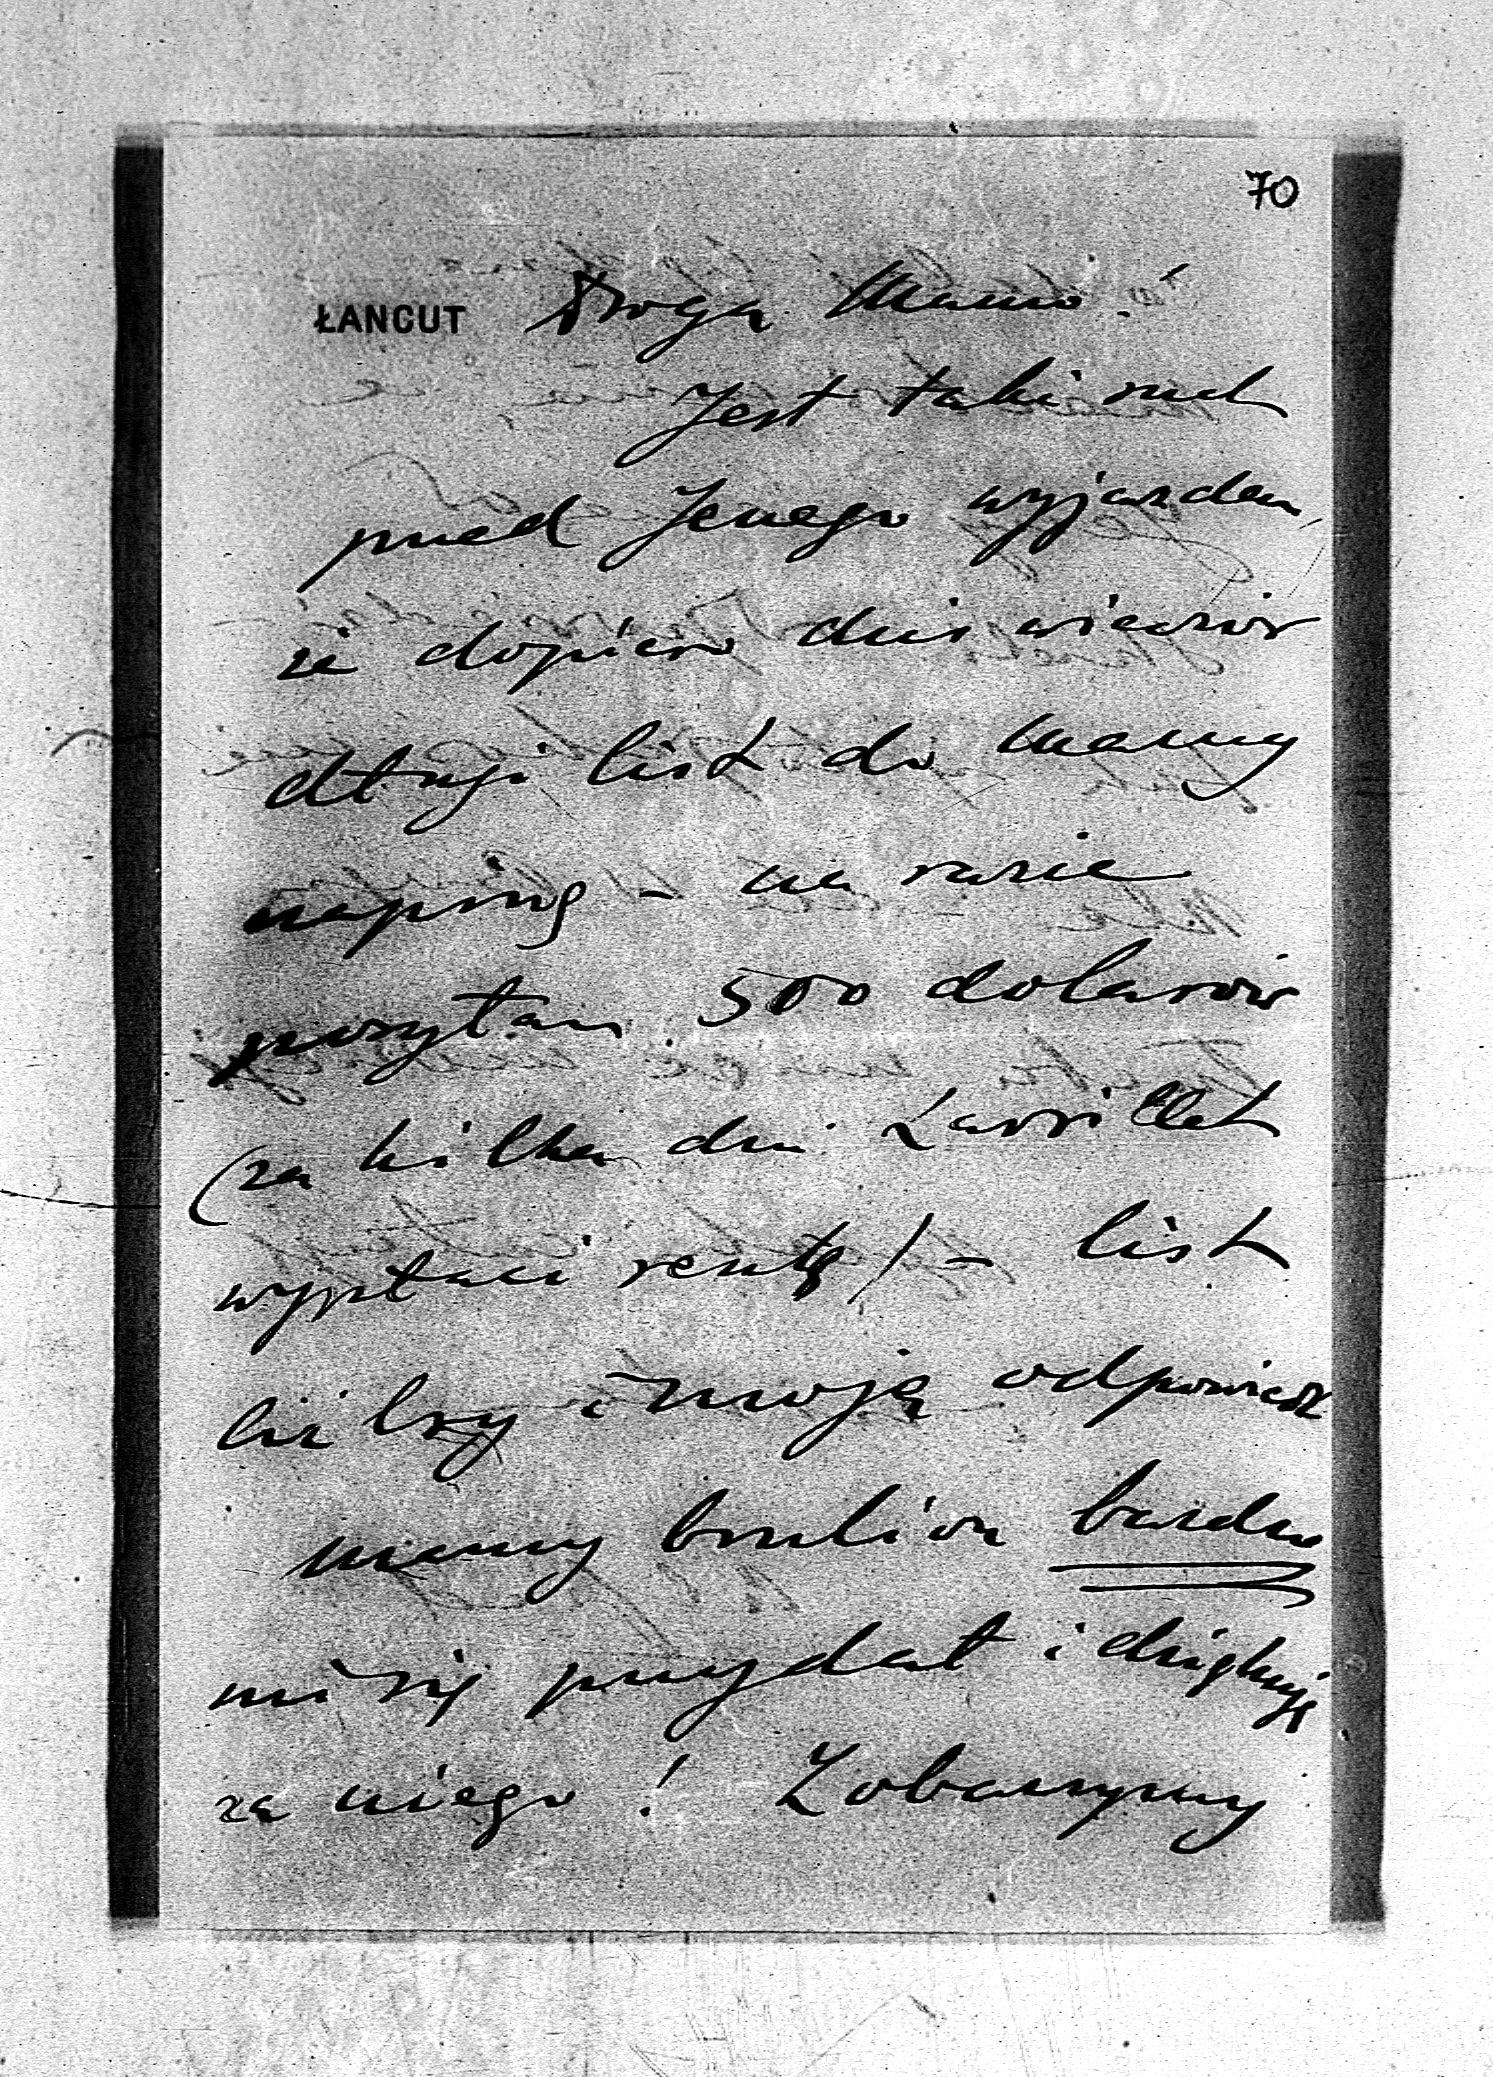 70
ŁANCUT Drogą Mamo!
Jest taki ruch
przed Jerzego wyjazdem
że dopiero dziś wieczór
długi list do Mamy
napiszę - na razie
posyłam 500 dolarów
(za kilka dni
wypłaci rentę) - list
i moją odpowiedź
mamy boulion bardzo
mi się przydał i dziękuję
za niego! Zobaczymy